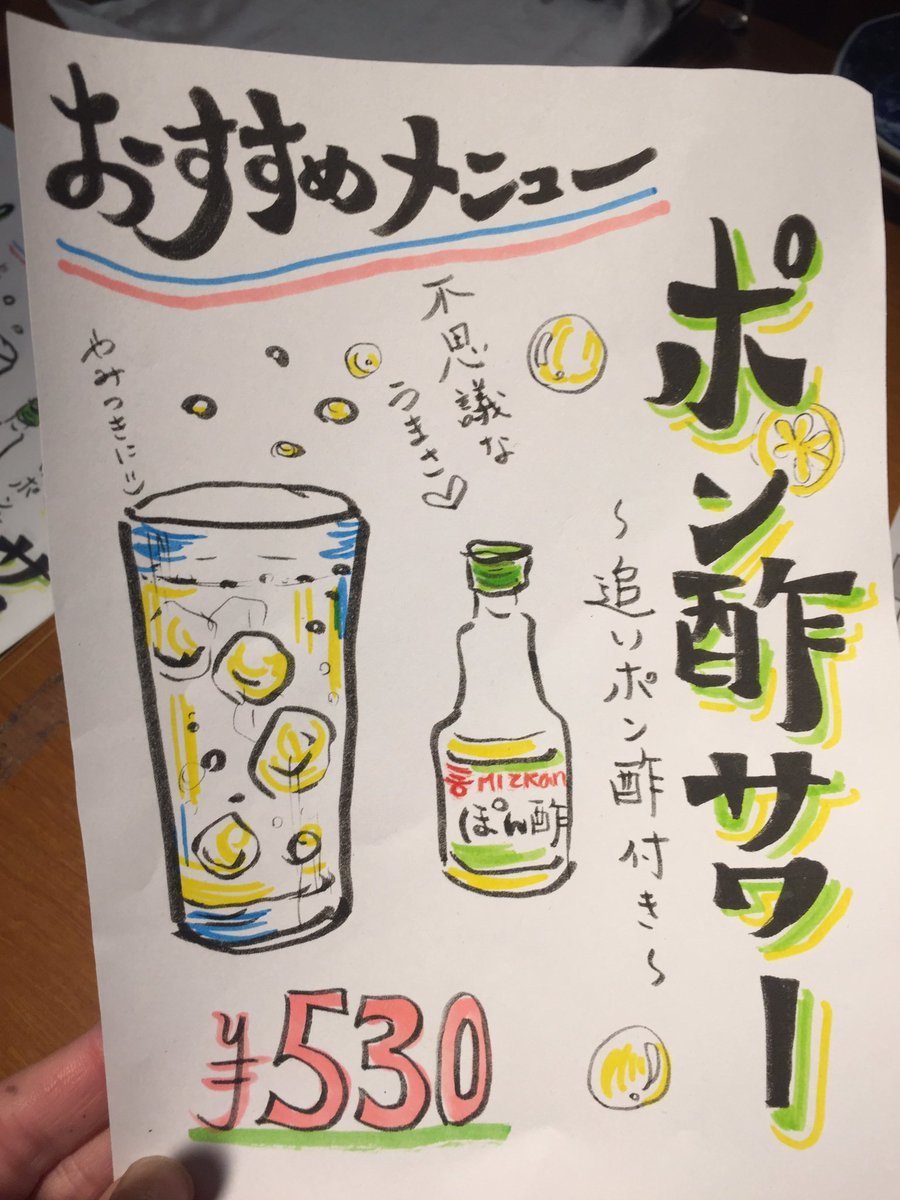 おすすめメニュー
ポン酢サワー
～追いポン酢付き～
不思議な
うまさ♡
やみつきに!!
MIZKAN
ぽん酢
¥530